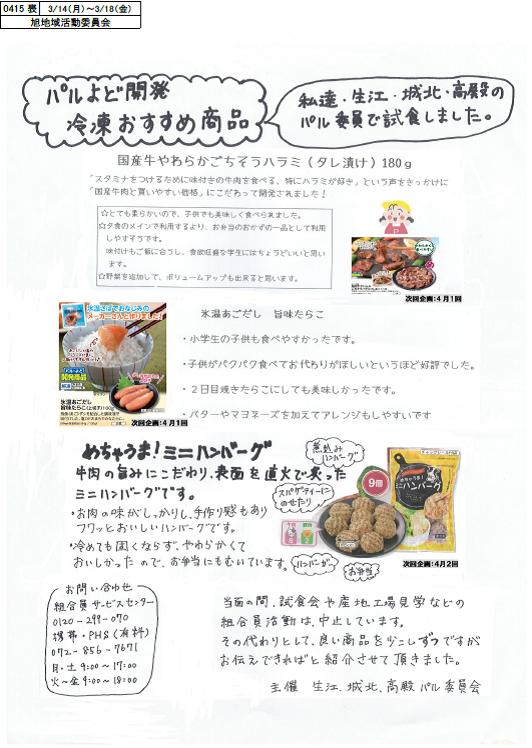 0415 裏 3/14(月)～3/18(金)
旭地域活動委員会
パルよど開発
冷凍おすすめ商品
私達・生江・城北・高殿の
パル委員で試食しました。
国産牛やわらかごちそうハラミ（タレ漬け）180g
「スタミナをつけるために味付きの牛肉を食べる、特にハラミが好き」という声をきっかけに
「国産牛肉と買いやすい価格」にこだわって開発されました！
☆とても柔らかいので、子供でも美味しく食べられました。
☆夕食のメインで利用するより、お弁当のおかずの一品として利用
しやすそうです。
味付けもご飯に合うし、食欲旺盛な学生にはちょうどいいと思い
ます。
☆野菜を追加して、ボリュームアップも出来ると思います。
P
次回企画:4月1回
氷温あごだし 旨味たらこ
・小学生の子供も食べやすかったです。
・子供がパクパク食べてお代わりがほしいというほど好評でした。
・２日目焼きたらこにしても美味しかったです。
・バターやマヨネーズを加えてアレンジもしやすいです
氷温さばでおなじみの
メーカーさんと作りました!
開発商品
氷温あごだし
旨味たらこ
次回企画:4月1回
めちゃうま！ミニハンバーグ
牛肉の旨みにこだわり、表面を直火で炙った
ミニハンバーグです。
・お肉の味がしっかりし、手作り感もあり
フワッとおいしいハンバーグです。
・冷めても固くならず、やわらかくて
おいしかったので、お弁当にもむいています。
煮込み
ハンバーグ
スパゲティーに
のせたり
ハンバーガー
お弁当
9個
ミニハンバーグ
次回企画:4月2回
お問い合わせ
組合員サービスセンター
0120-299-070
携帯・PHS(有料)
072-856-7671
月・土 9:00～17:00
火～金 9:00～18:00
当面の間、試食会や産地工場見学などの
組合員活動は、中止しています。
その代わりとして、良い商品を少しずつですが
お伝えできればと紹介させて頂きました。
主催 生江、城北、高殿 パル委員会